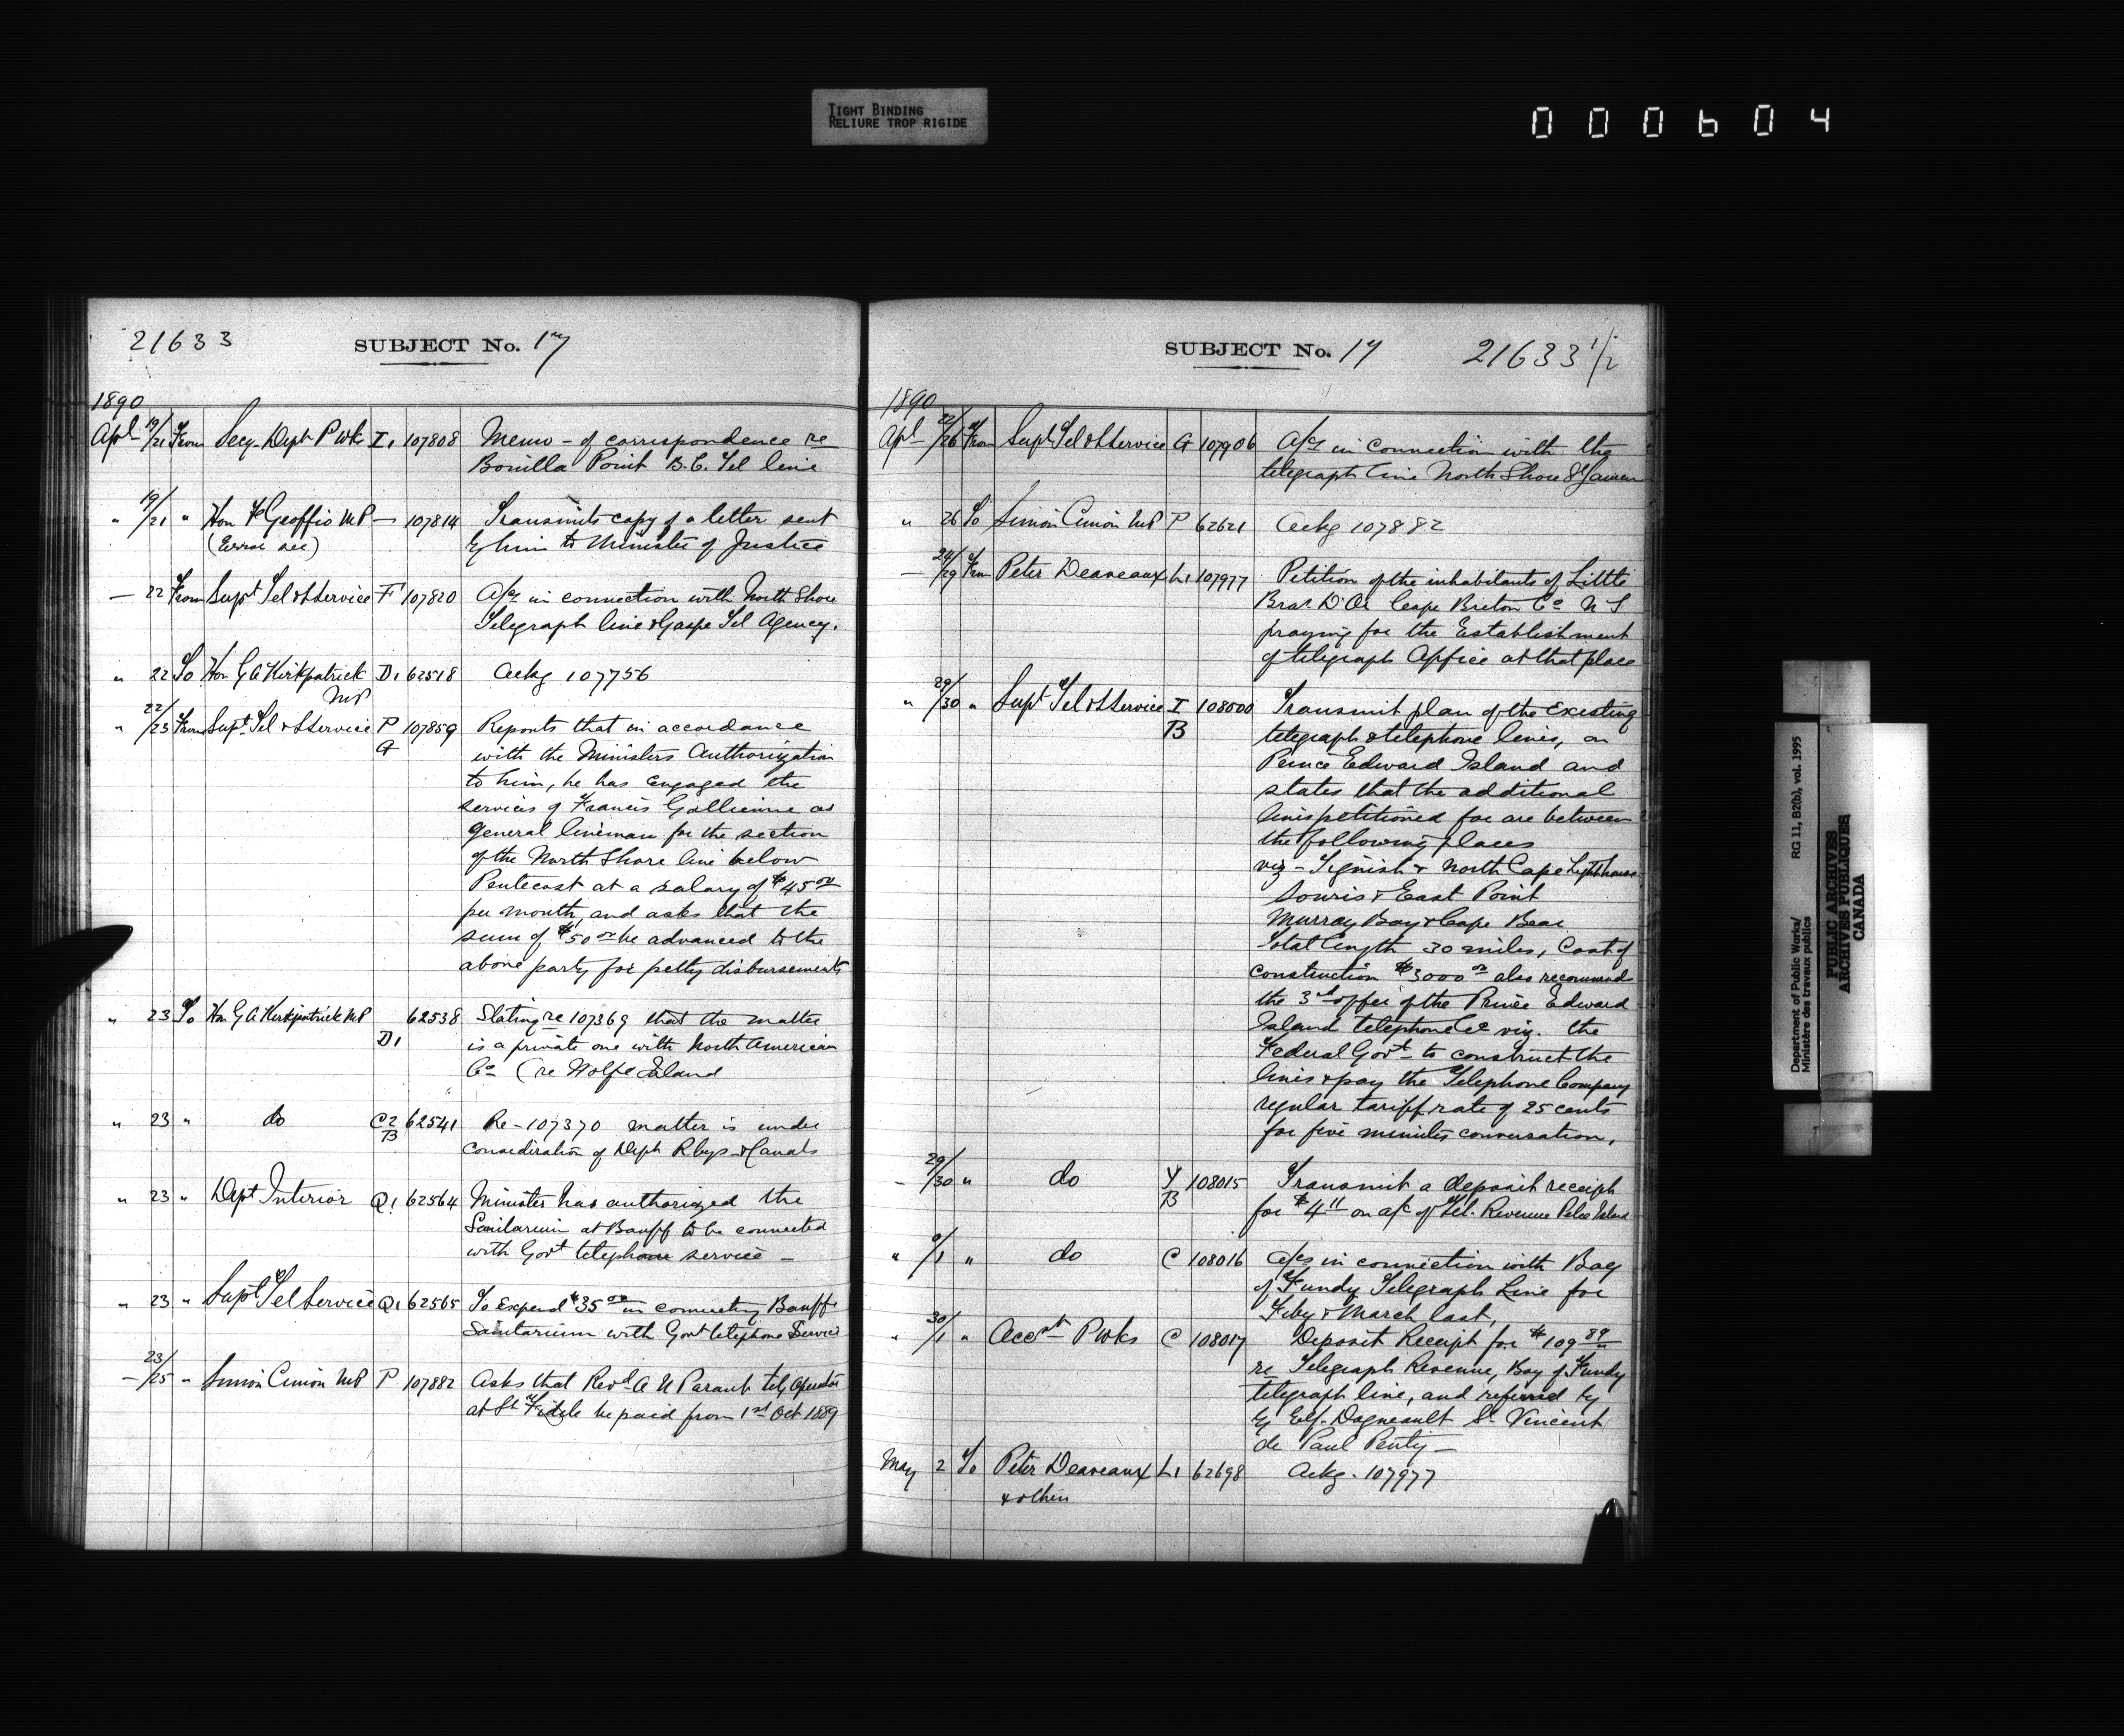 TIGHT BINDING
RELIURE TROP RIGIDE
000604
21633
SUBJECT No. 17
1890
Apl 19/21 From Secy. Dept P Wks I1 107808 Memo - of correspondence re
Bonilla Point B.C. Tel line
" 19/21 " Hon F Geoffrio MP — 107814 Transmits copy of a letter sent
(Error see) by him to Minister of Justice
— 22 From Supt Tel & S Service F 107820 A/cs in connection with North Shore
Telegraph line & Gaspe Tel Agency.
" 22 To Hon G A Kirkpatrick D1 62518 Ackg 107756
MP
" 22/23 From Supt Tel & S Service P 107859 Reports that in accordance
G with the Ministers Authorization
to him, he has engaged the
services of Francis Gallienne as
general lineman for the section
of the North Shore line below
Pentecost at a salary of $45 00
per month, and asks that the
sum of $50 00 be advanced to the
above party for petty disbursements
" 23 To Hon G A Kirkpatrick MP 62538 Stating re 107369 that the matter
D1 is a private one with North American
Co (re Wolfe Island
" 23 " do C2 62541 Re - 107370 matter is under
B consideration of Dept Rlwys & Canals
" 23 " Dept Interior Q1 62564 Minister has authorized the
Sanitarium at Banff to be connected
with Govt telephone service —
" 23 " Supt Tel Service Q1 62565 To Expend $35 00 in connecting Banff
Sanitarium with Govt telephone Service
— 23/25 " Simon Cimon MP P 107882 Asks that Revd A N Parant tel, Operator
at St Fidele be paid from 1st Oct 1889
SUBJECT No. 17
21633 1/2
1890
Apl 22/26 From Supt Tel & S Service G 107906 A/cs in connection with the
telegraph line North Shore St Lawren
" 26 To Simon Cimon MP P 62621 Ackg 107882
— 24/29 From Peter Deaveaux L1 107977 Petition of the inhabitants of Little
Bras D'Or Cape Breton Co N S
praying for the Establishment
of telegraph Office at that place
" 29/30 " Supt Tel & S Service I 108000 Transmit plan of the Existing
B telegraph & telephone lines, on
Prince Edward Island and
states that the additional
lines petitioned for are between
the following places
viz - Tignish & North Cape Lighthouse
Souris & East Point
Murray Bay & Cape Bear
Total length 30 miles, Cost of
construction $3000 00 also recommend
the 3rd offer of the Prince Edward
Island telephone Co viz. the
Federal Govt - to construct the
lines & pay the Telephone Company
regular tariff rate of 25 cents
for five minutes conversation,
- 29/30 " do Y 108015 Transmit a deposit receipt
B for $4 11 on a/c of tel. Revenue Pelee Island
" /1 " do C 108016 a/cs in connection with Bay
of Fundy Telegraph Line for
Feby & March last,
" 30/1 " Acct P Wks C 108017 Deposit Receipt for $109 89
re Telegraph Revenue, Bay of Fundy
telegraph line, and referred to
Dagneault St Vincent
de Paul Penty —
May 2 To Peter Deaveaux L1 62698 Ackg. 107977
& others
Department of Public Works/
Ministère des travaux publics
RG 11, B2(b), vol. 1995
PUBLIC ARCHIVES
ARCHIVES PUBLIQUES
CANADA